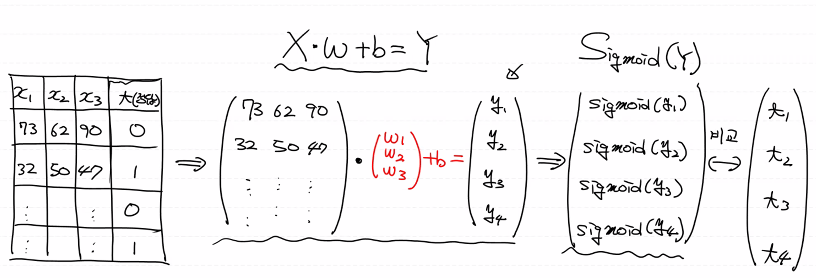 X・W+b=Y
Sigmoid(Y)
x₁ x₂ x₃ t(정답)
73 62 90 0
32 50 47 1
⋮ ⋮ 0
⋮ ⋮ 1
⇒
73 62 90
32 50 47
⋮ ⋮ ⋮
⋮ ⋮ ⋮
・
w₁
w₂
w₃
+b=
y₁
y₂
y₃
y₄
⇒
sigmoid(y₁)
sigmoid(y₂)
sigmoid(y₃)
sigmoid(y₄)
비교
↔
t₁
t₂
t₃
t₄